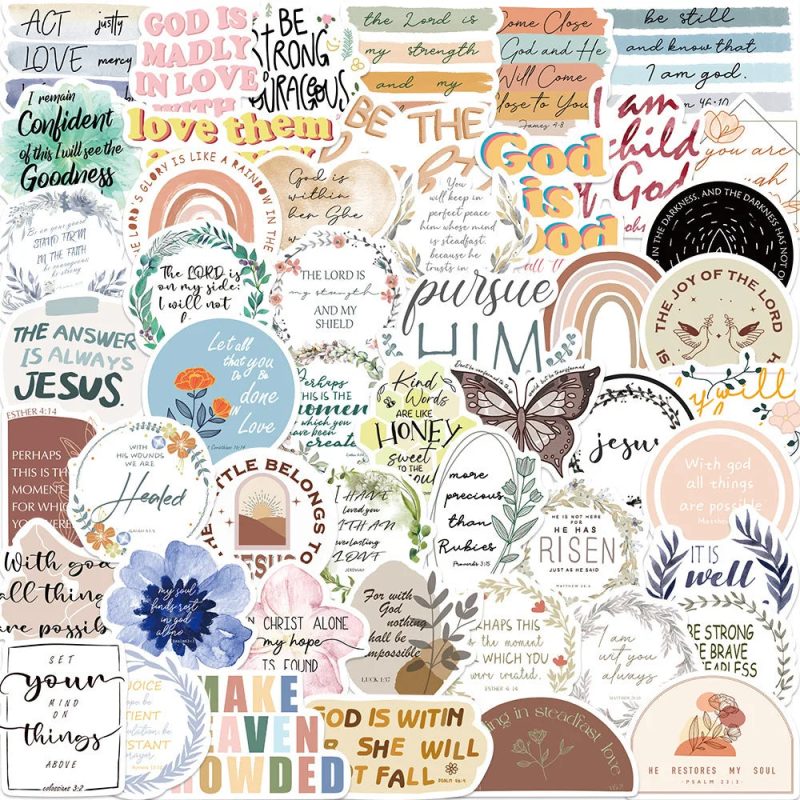 ACT justly
LOVE mercy
GOD IS
MADLY
IN LOVE
WITH
BE
STRONG
COURAGEOUS
the Lord is
my strength
and my
Come Close
God and He
Will Come
Close to You
James 4:8
be still
and know that
I am god.
46:10
I remain
Confident
of this I will see the
Goodness
love them
BE THE
God
is
Good
I am
child
God
you are
THE LORD'S GLORY IS LIKE A RAINBOW IN THE
God is
within
her She
You
will keep in
perfect peace
him whose mind
is steadfast,
because he
trusts in
IN THE DARKNESS, AND THE DARKNESS HAS NOT
Be on your guard
STAND FIRM
IN THE FAITH
be courageous
be strong
The LORD is
on my side;
I will not
THE LORD IS
my strength
AND MY
SHIELD
pursue
HIM
THE JOY OF THE LORD
IS
THE ANSWER
IS ALWAYS
JESUS.
Let all
that you
Do Be
done
in Love
Corinthians 16:14
Perhaps
THIS IS THE
moment
for which you
have been
created
Kind
Words
ARE LIKE
HONEY
sweet
TO THE
Don't be conformed to
world but be transformed
jesus
will
ESTHER 4:14
PERHAPS
THIS IS THE
MOMENT
FOR WHICH
YOU WERE
WITH
HIS WOUNDS
WE ARE
Healed
BATTLE BELONGS TO
JESUS
I HAVE
loved you
WITH AN
everlasting
LOVE
JEREMIAH
more
precious
than
Rubies
Proverbs 3:15
HE IS NOT HERE
FOR
HE HAS
RISEN
JUST AS HE SAID
MATTHEW 28:6
With god
all things
are possible
Matthew
IT IS
well
With God
all things
are possib
my soul
finds rest
in god
alone
IN CHRIST ALONE
my hope
IS FOUND
For with
God
nothing
shall be
impossible
LUCK 1:37
PERHAPS THIS
is the moment
for WHICH YOU
were created.
ESTHER 4:14
I am
wit you
always
MATTHEW 28:20
BE STRONG
BE BRAVE
FEARLESS
SET
your
MIND
ON
things
ABOVE
colossians 3:2
REJOICE
hope be
PATIENT
tribulation be
CONSTANT
prayer
Romans 12:12
MAKE
HEAVEN
CROWDED
GOD IS WITIN
HER SHE WILL
NOT FALL
PSALM 46:5
in steadfast love
HE RESTORES MY SOUL
PSALM 23:3